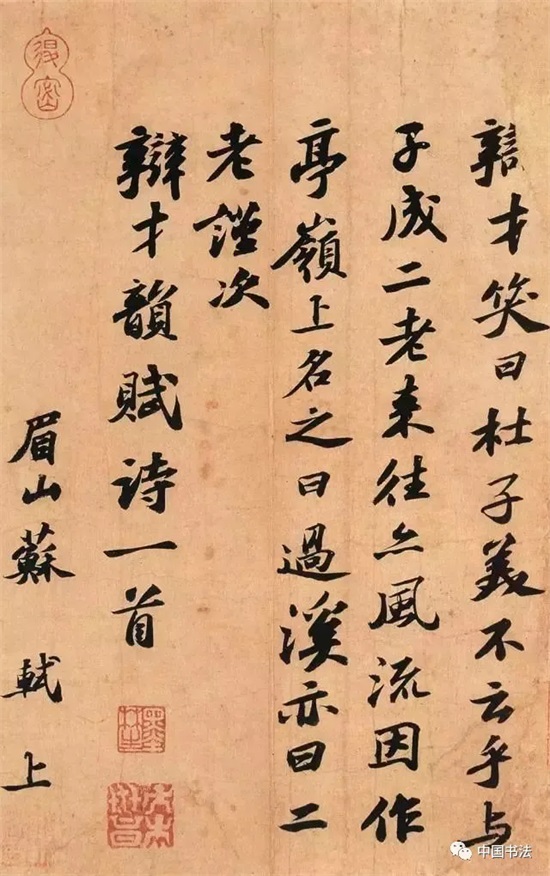 辯才笑曰杜子美不云乎与
子成二老来往亦風流因作
亭嶺上名之曰過溪亦曰二
老謹次
辯才韻賦诗一首
眉山蘇軾上
中国书法